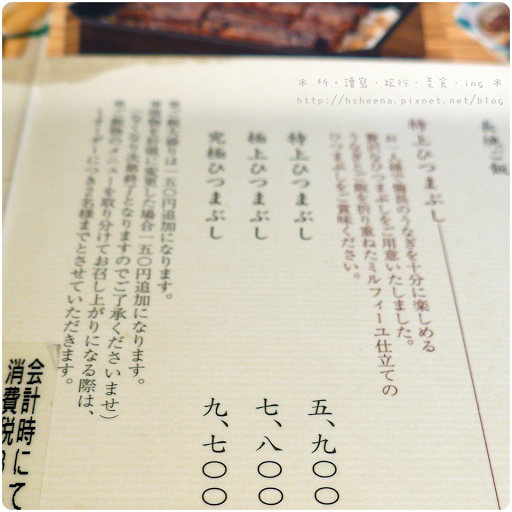 ＊ 析‧讀寫‧旅行‧美食‧ing ＊
http://hsheena.pixnet.net/blog
特上ひつまぶし
お一人様で備長のうなぎを十分に楽しめる
贅沢なひつまぶしをご用意いたしました。
うなぎとご飯を折り重ねたミルフィーユ仕立ての
ひつまぶしをご賞味ください。
特上ひつまぶし 五、九〇〇
極上ひつまぶし 七、八〇〇
究極ひつまぶし 九、七〇〇
大盛りは一五〇円追加になります。
に変更した場合一五〇円追加になります。
なくなり次第終了となりますのでご了承くださいませ）
のメニューを取り分けてお召し上がりになる際は、
オーダーにつき2名様までとさせていただきます。
会計時に
消費税8にて